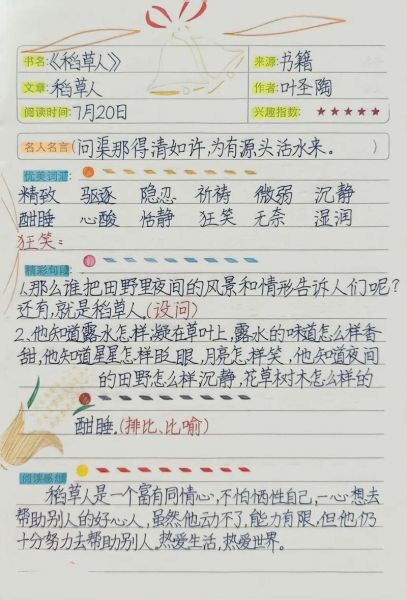 书名:《稻草人》 来源:书籍
文章:稻草人 作者:叶圣陶
阅读时间:7月20日 兴趣指数:★★★★★
名人名言(问渠那得清如许,为有源头活水来。)
优美词汇:
精致 驱逐 隐忍 祈祷 微弱 沉静
酣睡 心酸 恬静 狂笑 无奈 湿润
狂笑:
精彩句段:
1.那么谁把田野里夜间的风景和情形告诉人们呢?
还有,就是稻草人。(设问)
2、他知道露水怎样凝在草叶上,露水的味道怎么样香
甜,他知道星星怎样眨眼,月亮怎样笑,他知道夜间
的田野怎么样沉静,花草树木怎么样的
酣睡。(排比、比喻)
阅读感想
稻草人是一个富有同情心,不怕牺牲自己,一心想去
帮助别人的好心人,虽然他动不了,能力有限,但他仍
十分努力去帮助别人。热爱生活,热爱世界。